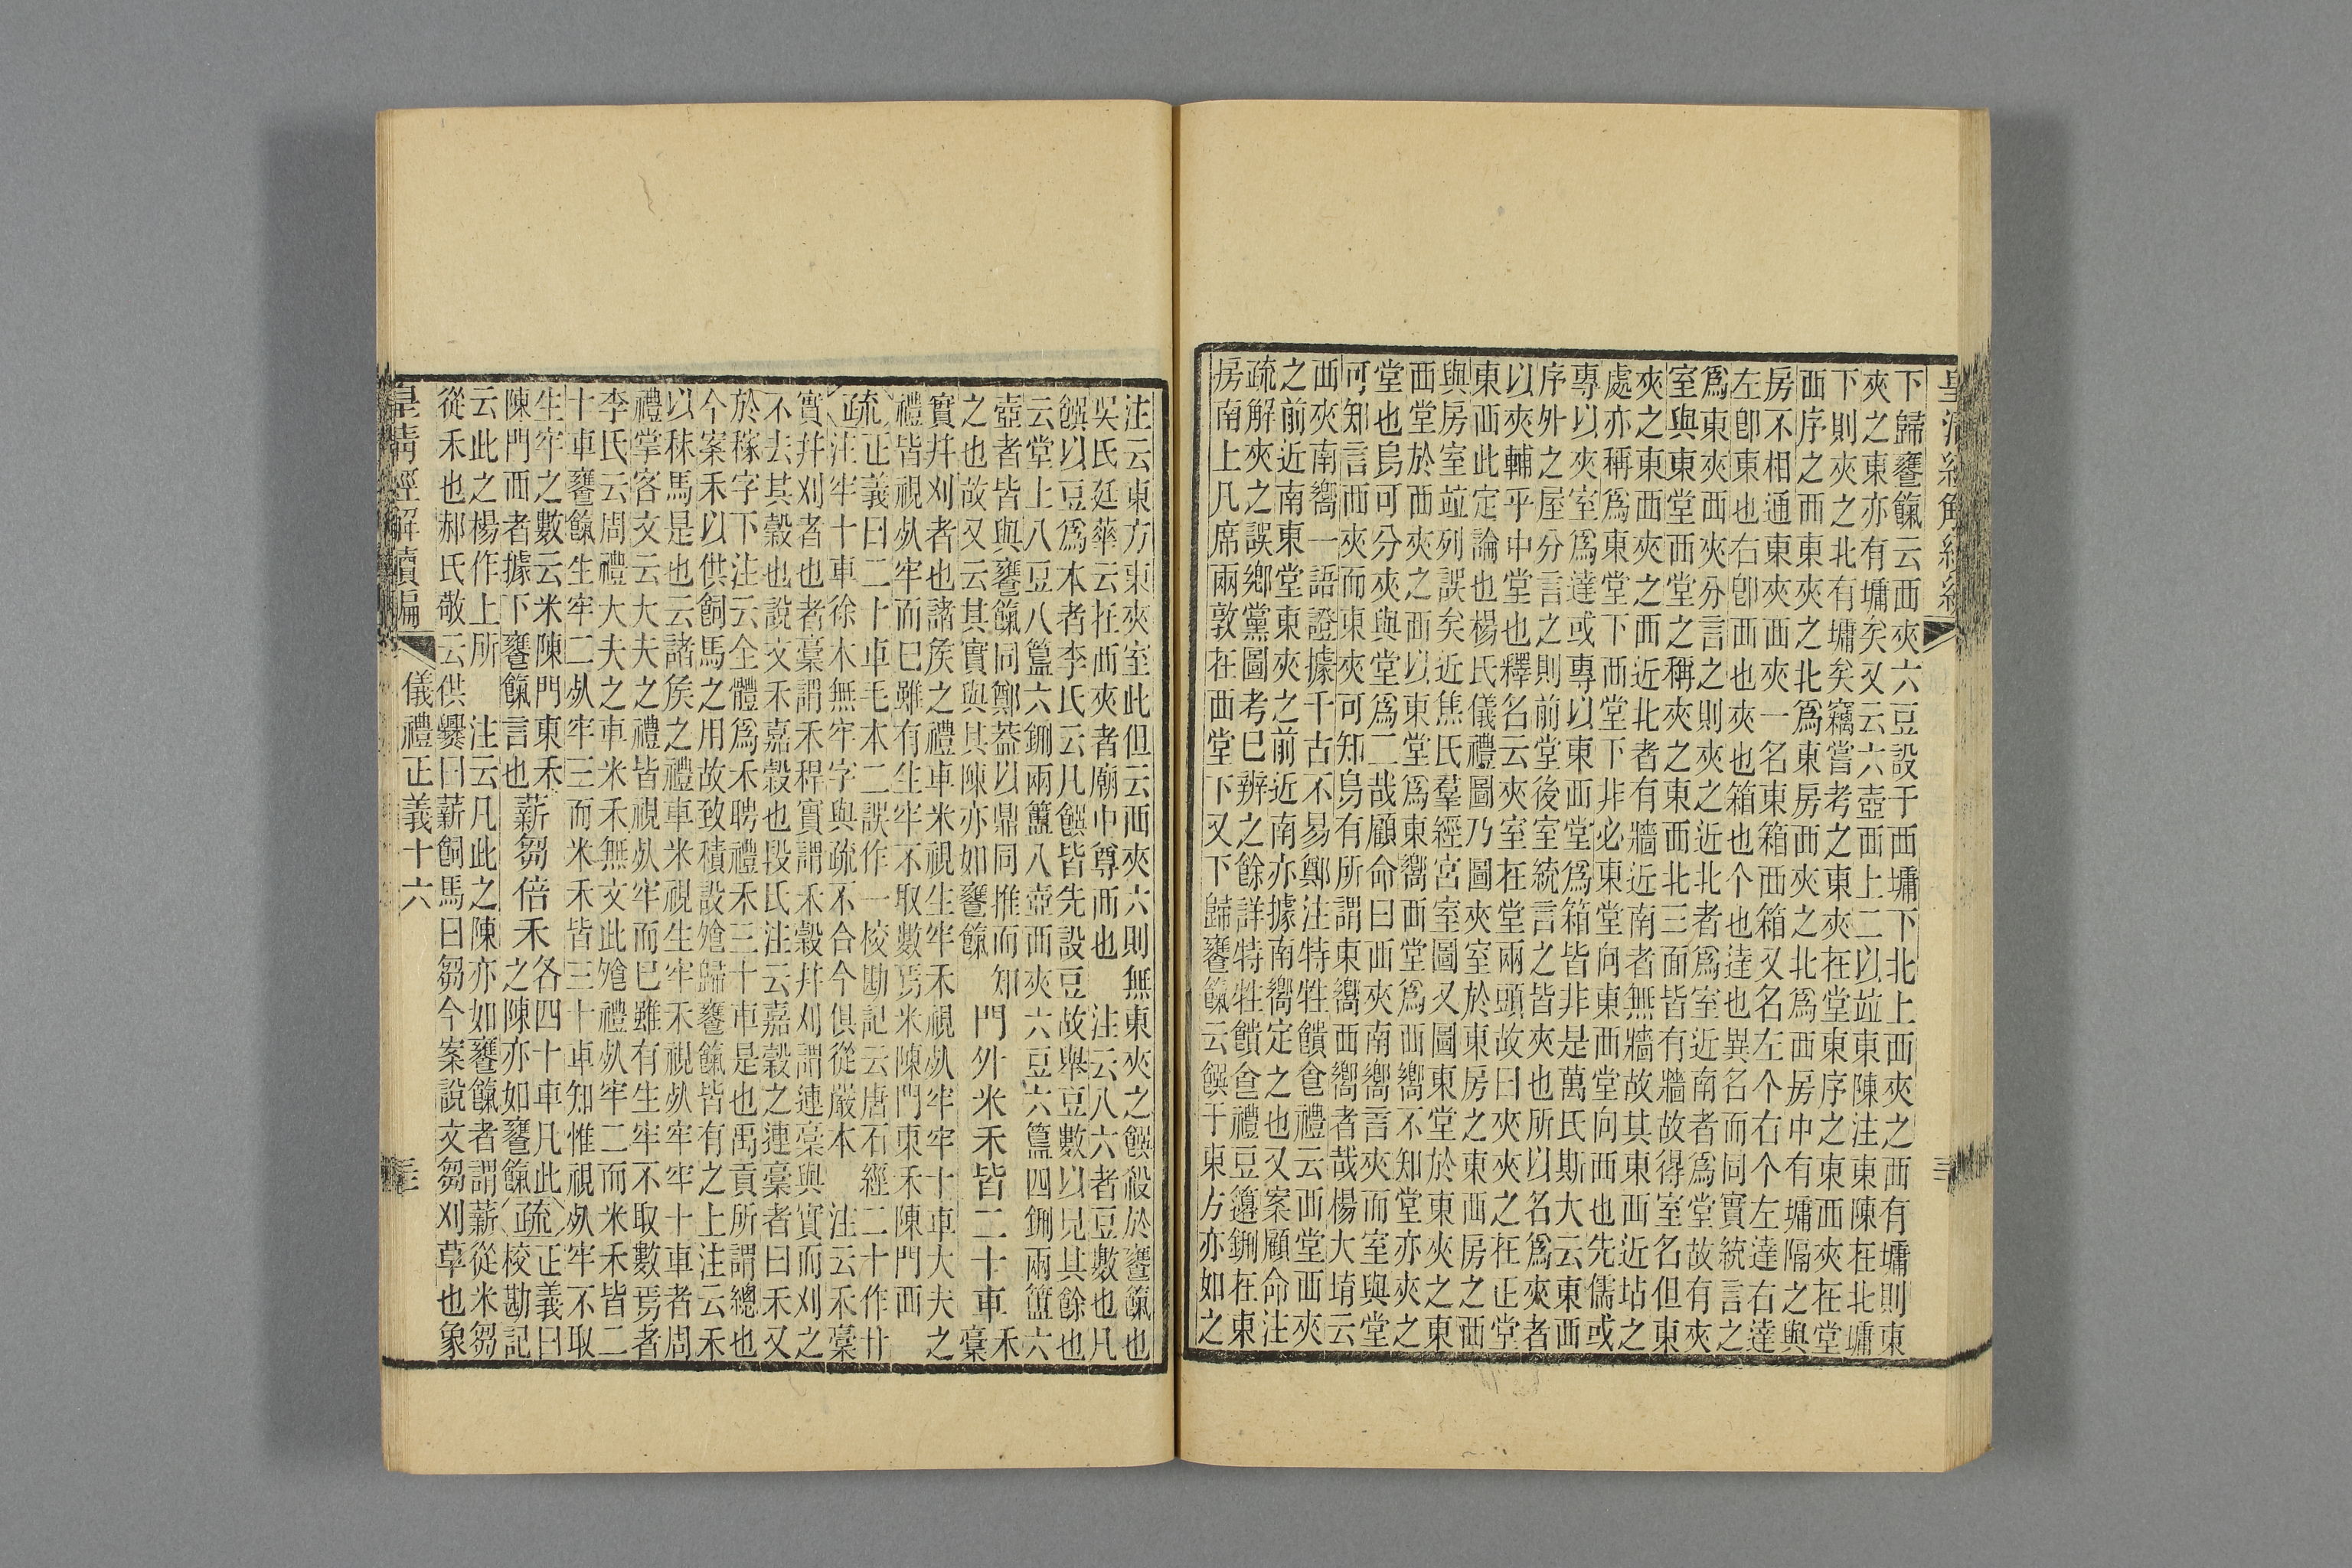 下歸饔餼云西夾六豆設于西墉下北上西夾之西有墉則東
夾之東亦有墉矣又云六壺西上二以竝東陳注東陳在北墉
下則夾之北有墉矣竊嘗考之東夾在堂東序之東西夾在堂
西序之西東夾之北爲東房西夾之北爲西房中有墉隔之與
房不相通東夾西夾一名東箱西箱又名左个右个左達右達
左卽東也右卽西也夾也箱也个也達也異名而同實統言之
爲東夾西夾分言之則夾之近北者爲室近南者爲堂故有夾
室與東堂西堂之稱夾之東西北三面皆有牆故得室名但東
夾之東西夾之西近北者有牆近南者無牆故其東西近坫之
處亦稱爲東堂下西堂下非必東堂向東西堂向西也先儒或
專以夾室爲達或專以東西堂爲箱皆非是萬氏斯大云東西
序外之屋分言之則前堂後室統言之皆夾也所以名爲夾者
以夾輔乎中堂也釋名云夾室在堂兩頭故曰夾夾之在正堂
東西此定論也楊氏儀禮圖乃圖夾室於東房之東西房之西
與房室竝列誤矣近焦氏羣經宮室圖又圖東堂於東夾之東
西堂於西夾之西以東堂爲東嚮西堂爲西嚮不知堂亦夾之
堂也烏可分夾與堂爲二哉顧命曰西夾南嚮言夾而室與堂
可知言西夾而東夾可知烏有所謂東嚮西嚮者哉楊大堉云
西夾南嚮一語證據千古不易鄭注特牲饋食禮云西堂西夾
之前近南東堂東夾之前近南亦據南嚮定之也又案顧命注
疏解夾之誤鄉黨圖考巳辨之餘詳特牲饋食禮豆籩鉶在東
房南上几席兩敦在西堂下又下歸饔餼云饌于東方亦如之
注云東方東夾室此但云西夾六則無東夾之饌殺於饔餼也
吳氏廷華云在西夾者廟中尊西也 注云八六者豆數也凡
饌以豆爲本者李氏云凡饌皆先設豆故舉豆數以見其餘也
云堂上八豆八簋六鉶兩簠八壺西夾六豆六簋四鉶兩簠六
壺者皆與饔餼同鄭葢以鼎同推而知
之也故又云其實與其陳亦如饔餼
門外米禾皆二十車
禾
稾
實幷刈者也諸矦之禮車米視生牢禾視死牢牢十車大夫之
禮皆視死牢而巳雖有生牢不取數焉米陳門東禾陳門西
疏正義曰二十車毛本二誤作一校勘記云唐石經二十作廿
注牢十車徐本無牢字與疏不合今俱從嚴本 注云禾稾
實幷刈者也者稾謂禾稈實謂禾穀幷刈謂連稾與實而刈之
不去其穀也說文禾嘉穀也段氏注云嘉穀之連稾者曰禾又
於稼字下注云全體爲禾聘禮禾三十車是也禹貢所謂總也
今案禾以供飼馬之用故致積設飧歸饔餼皆有之上注云禾
以秣馬是也云諸矦之禮車米視生牢禾視死牢牢十車者周
禮掌客文云大夫之禮皆視死牢而巳雖有生牢不取數焉者
李氏云周禮大夫之車米禾無文此飧禮死牢二而米禾皆二
十車饔餼生牢二死牢三而米禾皆三十車知惟視死牢不取
生牢之數云米陳門東禾
陳門西者據下饔餼言也
薪芻倍禾
各四十車凡此
之陳亦如饔餼
疏
正義曰
校勘記
云此之楊作上所 注云凡此之陳亦如饔餼者謂薪從米芻
從禾也郝氏敬云供爨曰薪飼馬曰芻今案說文芻刈草也象
皇清經解續編 儀禮正義十六